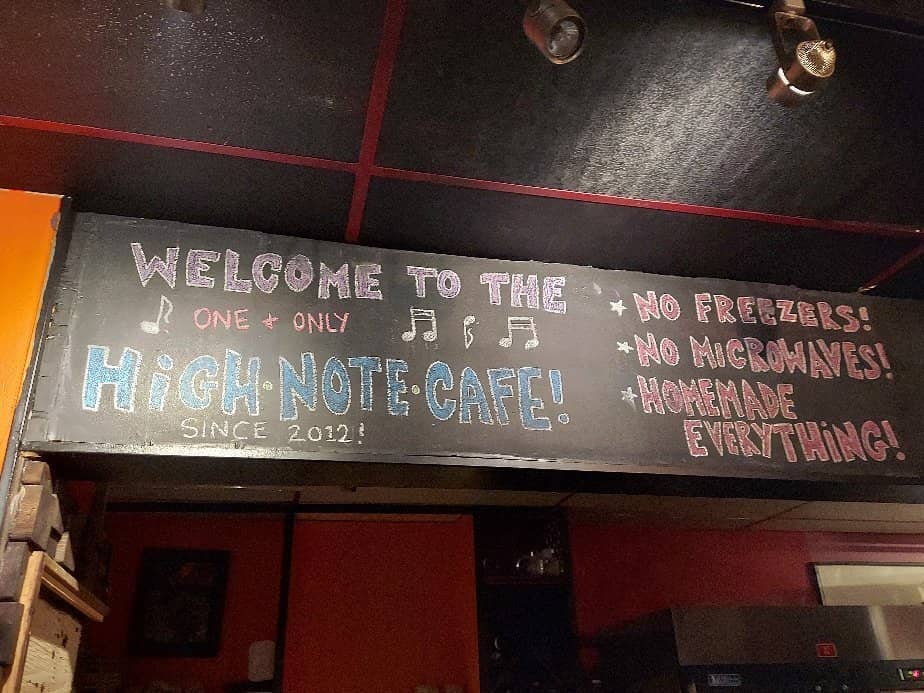 WELCOME TO THE
ONE + ONLY
HiGH·NOTE·CAFE!
SINCE 2012!
NO FREEZERS!
NO MiCROWAVES!
HOMEMADE
EVERYTHiNG!